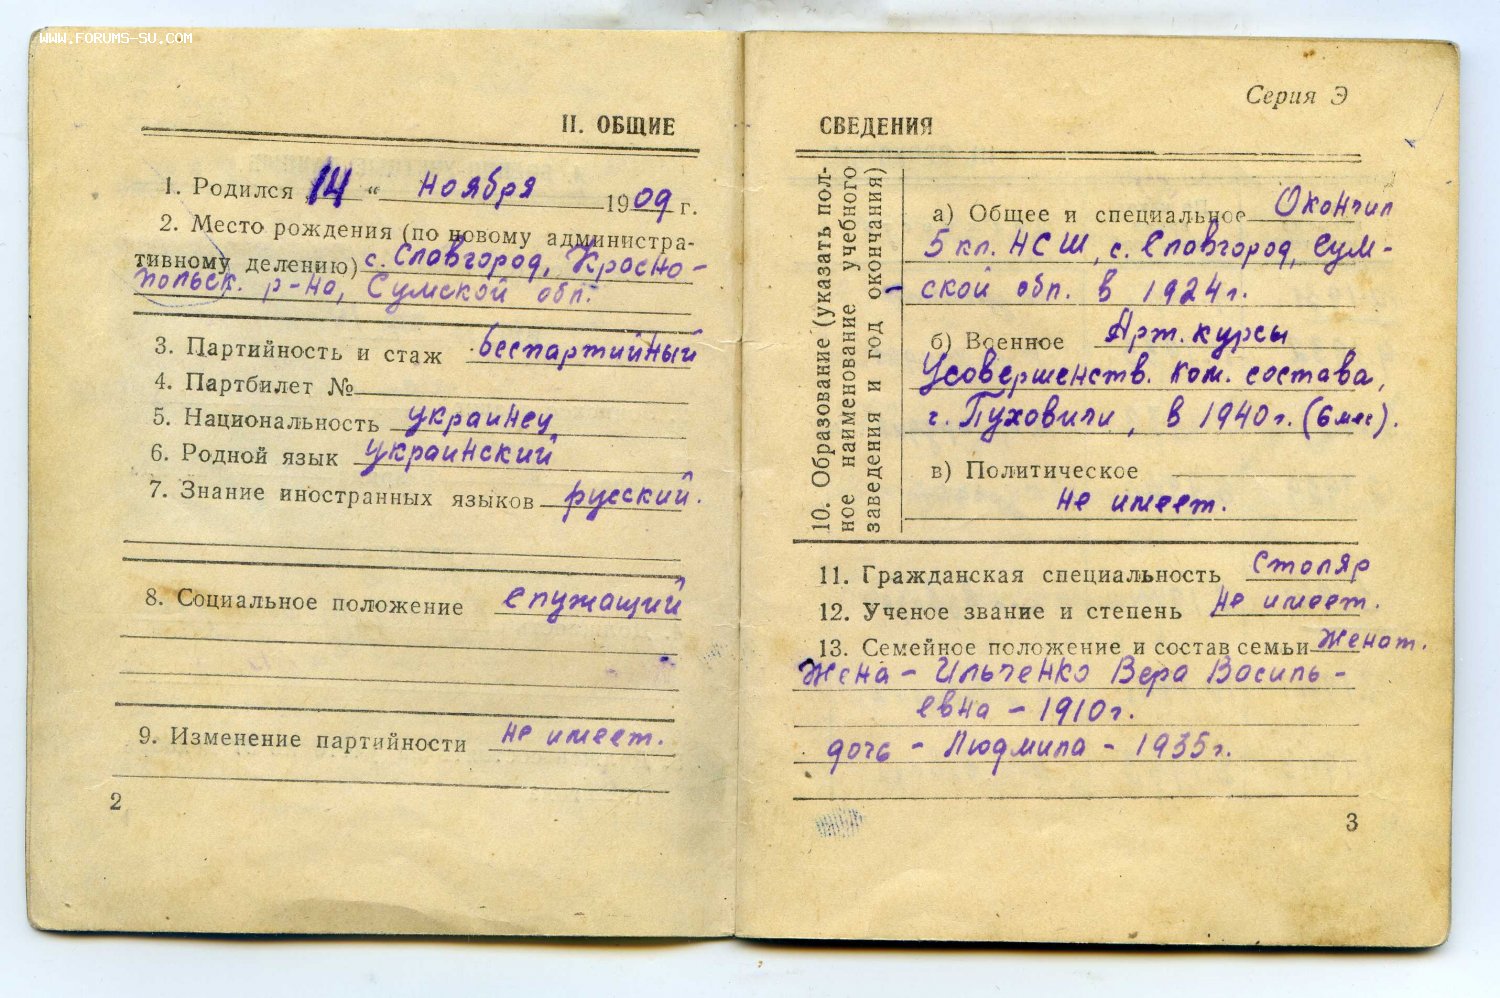 WWW.FORUMS-SU.COM
II. ОБЩИЕ
1. Родился 14 “ ноября 1909 г.
2. Место рождения (по новому администра-
тивному делению) с. Славгород, Красно-
польск. р-на, Сумской обл.
3. Партийность и стаж беспартийный
4. Партбилет №
5. Национальность украинец
6. Родной язык украинский
7. Знание иностранных языков русский.
8. Социальное положение служащий
9. Изменение партийности не имеет.
2
Серия Э
СВЕДЕНИЯ
10. Образование (указать пол-
ное наименование учебного
заведения и год окончания)
а) Общее и специальное Окончил
5 кл. НСШ, с. Славгород, Сум-
ской обл. в 1924г.
б) Военное Арт. курсы
Усовершенств. ком. состава,
г. Пуховичи, в 1940г. (6 мес).
в) Политическое
не имеет.
11. Гражданская специальность столяр
12. Ученое звание и степень не имеет.
13. Семейное положение и состав семьи Женат.
Жена - Ильченко Вера Василь-
евна - 1910г.
дочь - Людмила - 1935г.
3